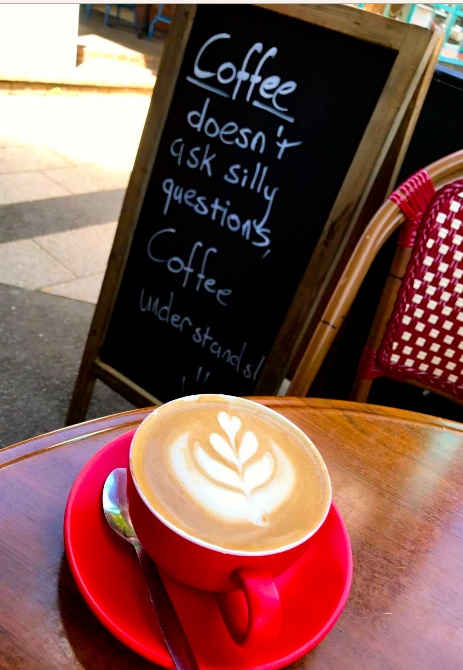 Coffee
doesn't
ask silly
questions,
Coffee
understands!